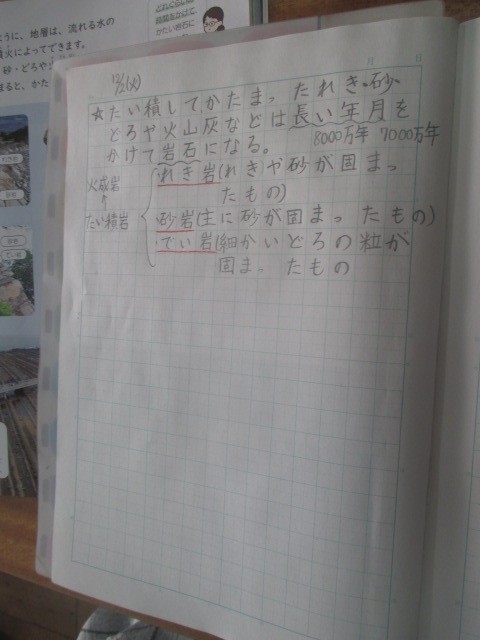 ように、地層は、流れる水の
噴火によってできます。
砂・どろや
まると、かた
かたい岩石に
月 日
12/2(火)
☆たい積してかたまったれき・砂
どろや火山灰などは長い年月を
8000万年 7000万年
かけて岩石になる。
火成岩
たい積岩
れき岩(れき)や砂が固まっ
たもの)
砂岩(主に砂が固まったもの)
でい岩(細かいどろの粒が
固まったもの